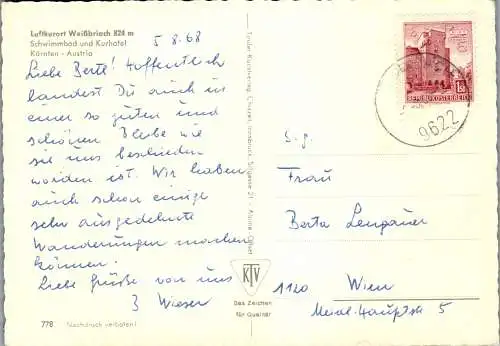 Luftkurort Weißbriach 824 m
Schwimmbad und Kurhotel
Kärnten - Austria
5.8.68
Liebe Berta! Hoffentlich
landest Du auch in
einer so guten und
schönen Bleibe wie
sie uns beschieden
worden ist. Wir haben
auch schon einige
sehr ausgedehnte
Wanderungen machen
können.
Liebe Grüße von uns
3 Wieser
778 Nachdruck verboten!
Tiroler Kunstverlag Chizzali, Innsbruck
KTV
Das Zeichen
für Qualität
REPUBLIK ÖSTERREICH
9622
S.g.
Frau
Berta Lengauer
1120 Wien
Meidl. Hauptstr 5